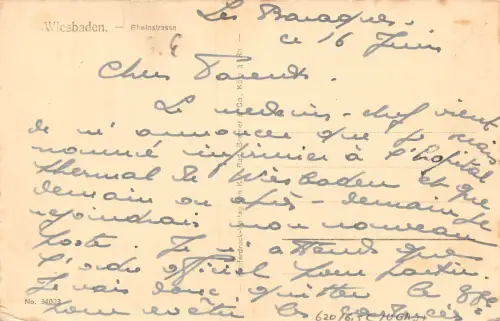 Wiesbaden. — Rheinstrasse
Les Baraques.
ce 16 Juin
Chers Parents.
Le medecin-chef vient
de m'annoncer que je suis
nommé infirmier à l'hopital
thermal de Wiesbaden et que
demain ou après-demain je
rejoindrais mon nouveau
poste. Je n'attends que
l'ordre officiel pour partir.
Je vais donc quitter le
pour
No. 36002